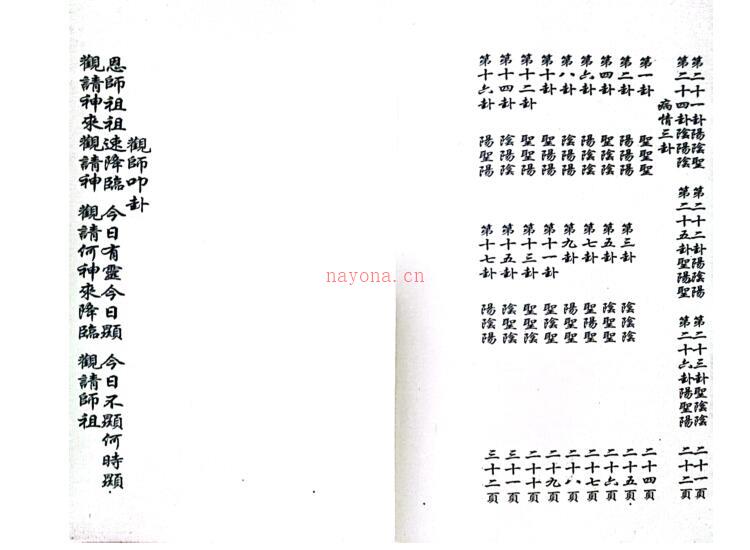 第二十一卦陽陰聖 第二十二卦陽陰陽 第二十三卦聖陰陰 二十一頁
第二十四卦陰陽陰 第二十五卦聖陽聖 第二十六卦陽聖陽 二十二頁
病情三卦
第一卦 聖聖聖 二十四頁
第二卦 陽陽陰 第三卦 陰陰陰 二十五頁
第四卦 陽陰陰 第五卦 聖陽聖 二十六頁
第六卦 陽陰陰 第七卦 聖陰聖 二十七頁
第八卦 陰陽陽 第九卦 陽陽聖 二十八頁
第十卦 聖聖陽 第十一卦 聖聖聖 二十九頁
第十二卦 聖聖陽 第十三卦 聖聖陰 二十十頁
第十四卦 陰陰陽 第十五卦 陰聖陰 三十一頁
第十六卦 陽聖陽 第十七卦 陽陰陽 三十二頁
觀師叩卦
恩師祖祖速降臨 今日有靈今日顯 今日不顯何時顯
觀請神來觀請神 觀請何神來降臨 觀請師祖
nayona.cn